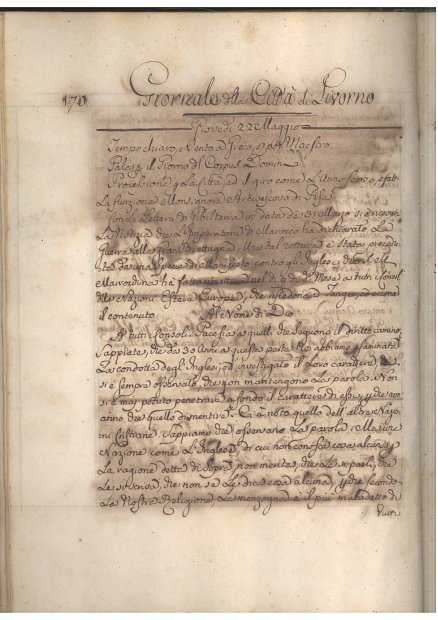 170 Giornale della Città di Livorno
Giovedì 22 Maggio
Tempo chiaro, e Vento a Greco, e Maestro
il Giorno del Corpus Domini
Processione la Città, ad il giro come l'Anno scorso, e fatta
La funzione Monsignore Arcivescovo di Pisa
Con Lettere di Gibilterra in data de 31 Marzo si è ricevuta
La Notizia che l'Imperatore di Marocco ha dichiarato La
Guerra alla Gran Brettagna. Una tal rottura è stata prece
duta da una Specie di Manifesto contro gl'Inglesi, che il Rè
ha fatto mese a tutti i Consoli
delle Nazioni Estere Europee, che risiedono a Tanger, ed eccone
il contenuto Al Nome di Dio
A tutti i Consoli Pace sia a quelli che seguono il diritto camino,
Sappiate, che da 30 Anni a questa parte Noi abbiamo esaminata
La condotta degl'Inglesi, ed investigato il Loro carattere,
si è sempre osservato che non mantengono La parola. Non
si è mai potuto penetrare a fondo il Carattere di essi,
anno che quello di mentire. Ci è noto quello dell'altre Nazio
ni Cristiane. Sappiamo che osservano La parola. Ma una
Nazione come L'Inglese, di cui non conosce cosa alcuna,
La ragione detta di Sopra, non merita, che Le si parli, che
Le si scriva, che non se Le dica cosa alcuna, che secondo
La Nostra Religione, La menzogna è il più maledetto di